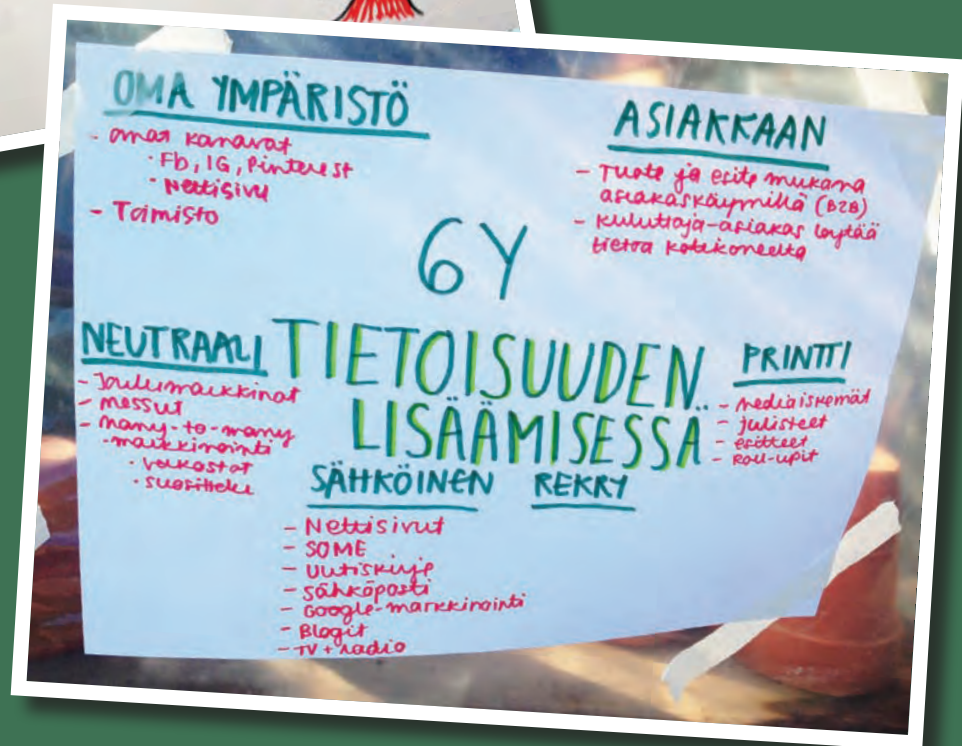 OMA YMPÄRISTÖ
- omat kanavat
· Fb, IG, Pinterest
· Nettisivu
- Toimisto
ASIAKKAAN
- Tuote ja esite mukana
asiakaskäynnillä (B2B)
- kuluttaja-asiakas löytää
tietoa kotikoneelta
6Y
TIETOISUUDEN
LISÄÄMISESSÄ
NEUTRAALI
- Joulumarkkinat
- messut
- many-to-many
-markkinointi
· verkostot
· suosittelu
PRINTTI
- mediaiskemät
- julisteet
- esitteet
- Roll-upit
SÄHKÖINEN
- Nettisivut
- SOME
- Uutiskirje
- sähköposti
- Google-markkinointi
- Blogit
- TV + radio
REKRY